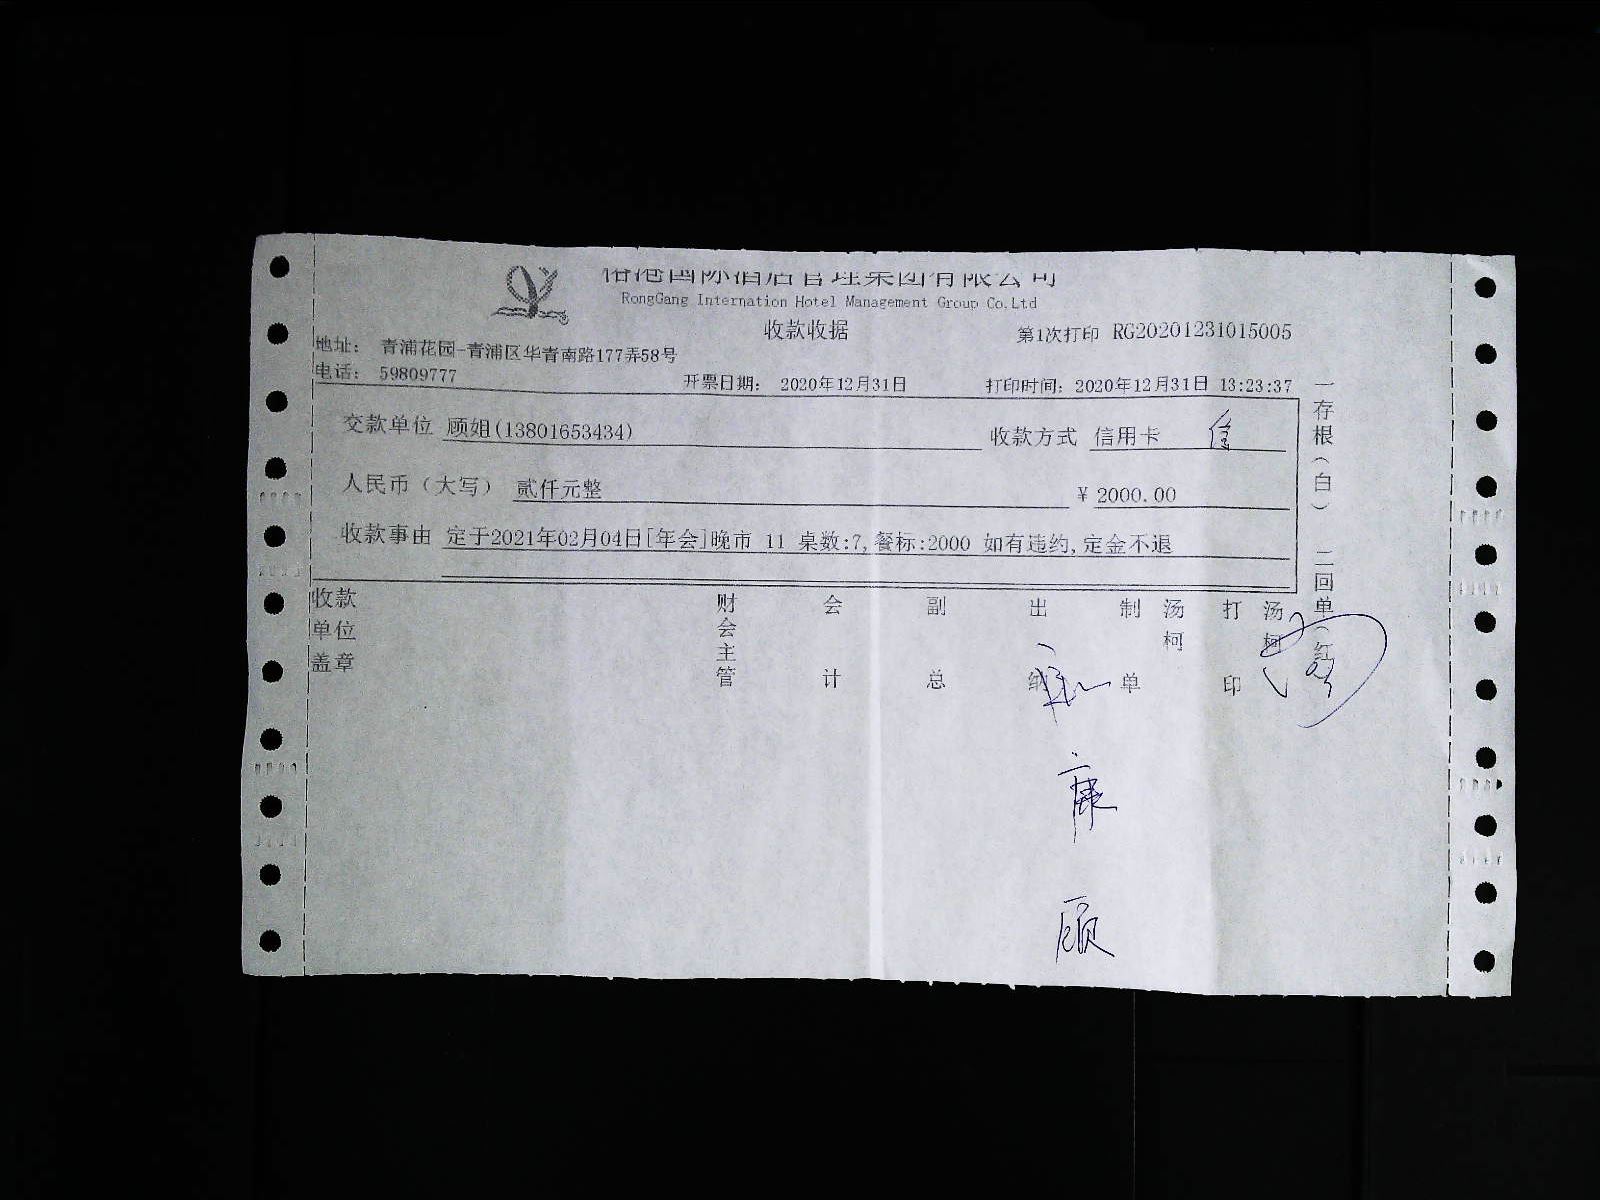 港国际酒店管理集团有限公司
RongGang Internation Hotel Management Group Co.Ltd
收款收据
第1次打印 RG20201231015005
地址： 青浦花园-青浦区华青南路177弄58号
电话： 59809777
开票日期： 2020年12月31日
打印时间：2020年12月31日 13:23:37
交款单位 顾姐(13801653434)
收款方式 信用卡 信
人民币（大写） 贰仟元整
¥ 2000.00
收款事由 定于2021年02月04日[年会]晚市 11 桌数:7,餐标:2000 如有违约,定金不退
收款单位盖章
财会主管
会计
副总
出纳
制单
汤柯
打印
汤柯
一存根（白） 二回单（红
康
顾